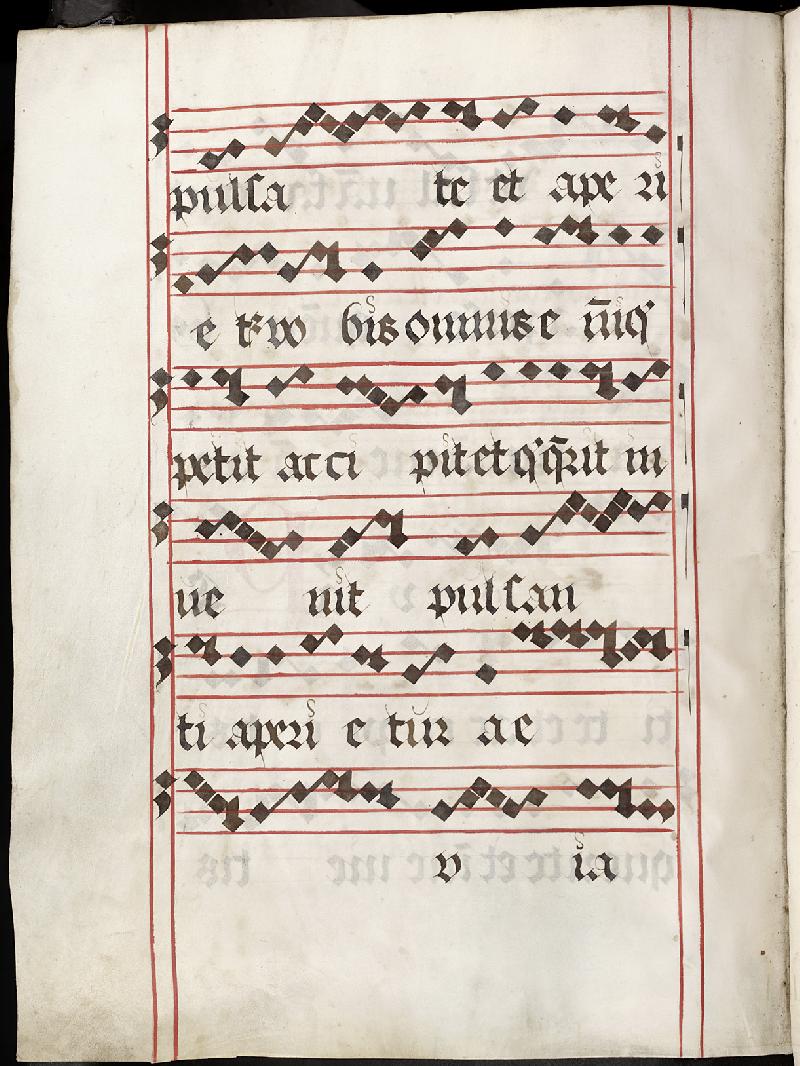 pulsa te et ape ri
e tur vo bis omnis e niq̄
petit acci pit et q̄ q̄rit in
ue nit pulsan
ti aperi e tur ae
v ia